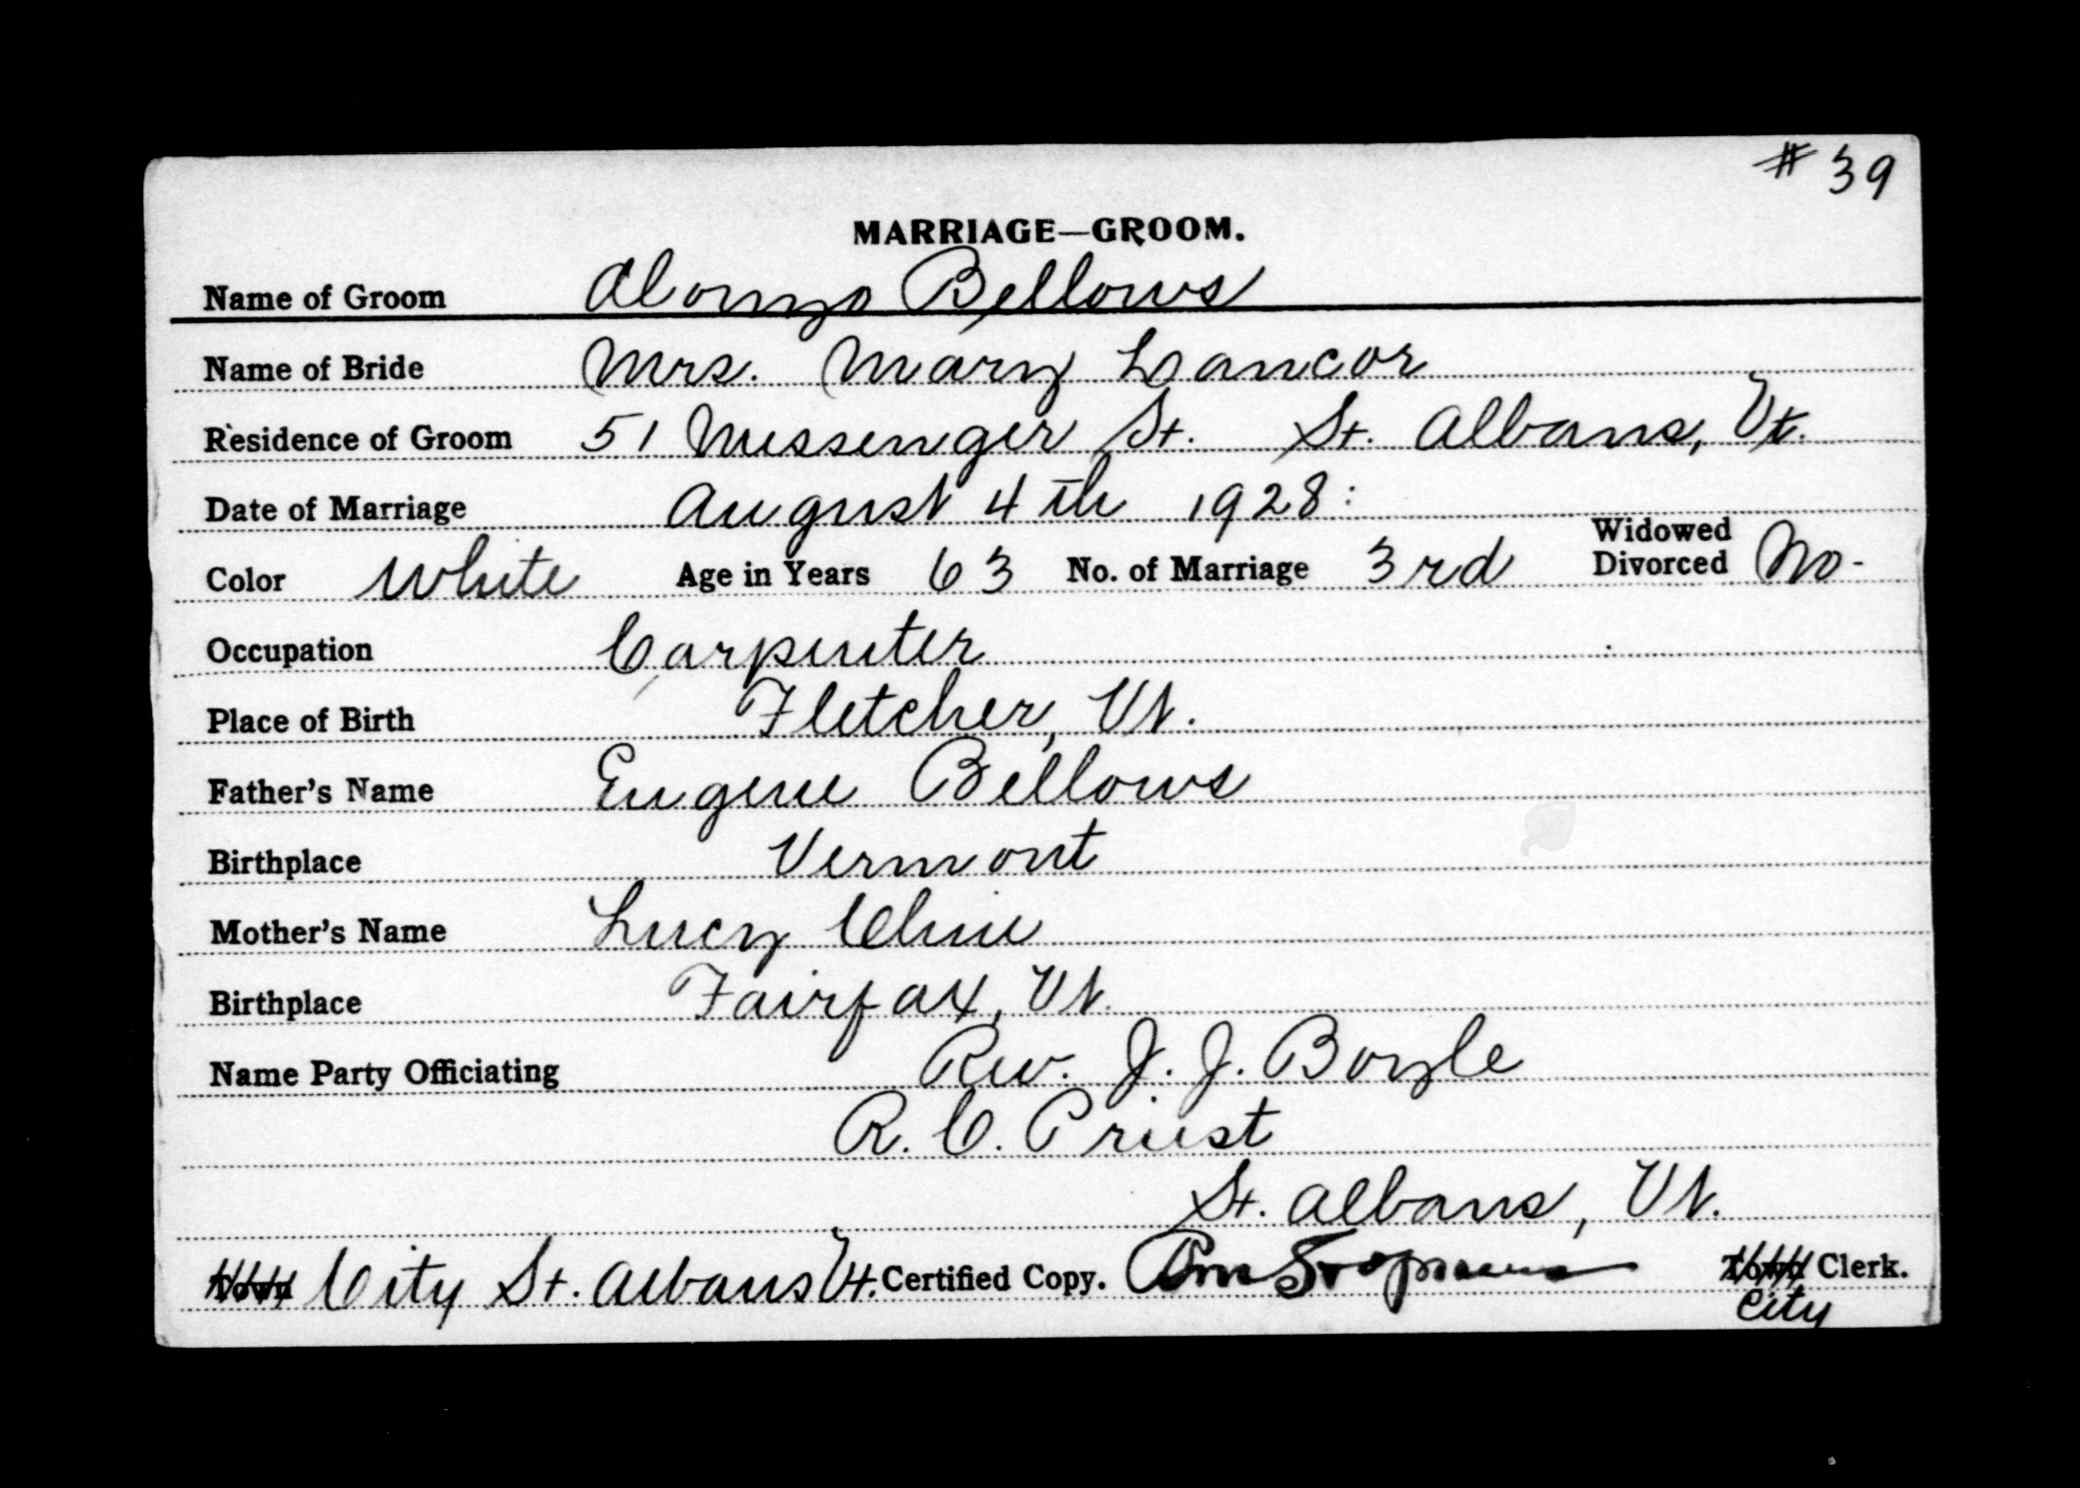 # 39
MARRIAGE—GROOM.
Name of Groom Alonzo Bellows
Name of Bride Mrs. Mary Lancor
Residence of Groom 51 Messenger St. St. Albans, Vt.
Date of Marriage August 4th 1928:
Color White Age in Years 63 No. of Marriage 3rd Widowed Divorced No-
Occupation Carpenter
Place of Birth Fletcher, Vt.
Father's Name Eugene Bellows
Birthplace Vermont
Mother's Name Lucy Cline
Birthplace Fairfax, Vt.
Name Party Officiating Rev. J. J. Boyle
R. C. Priest
St. Albans, Vt.
Town City St. Albans Vt. Certified Copy. Town Clerk.
City